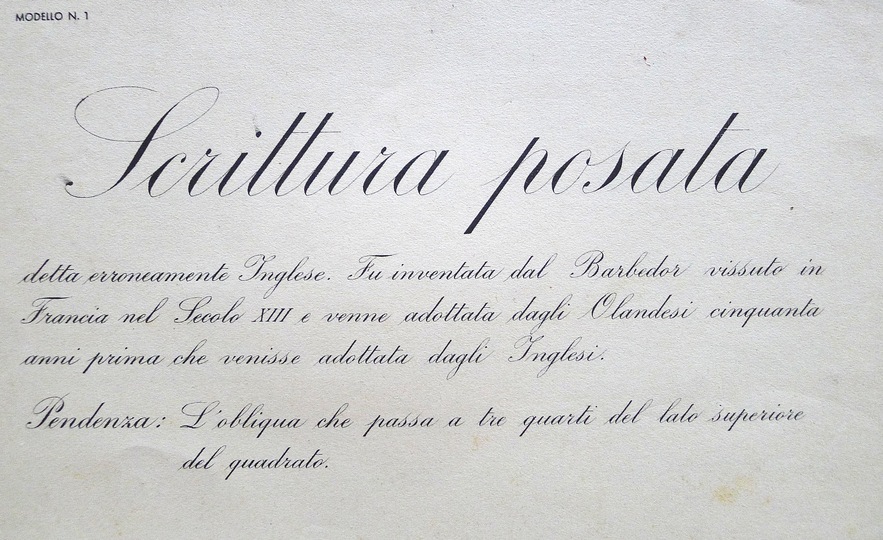 MODELLO N. 1
Scrittura posata
detta erroneamente Inglese. Fu inventata dal Barbedor vissuto in
Francia nel Secolo XIII e venne adottata dagli Olandesi cinquanta
anni prima che venisse adottata dagli Inglesi.
Pendenza: L'obliqua che passa a tre quarti del lato superiore
del quadrato.